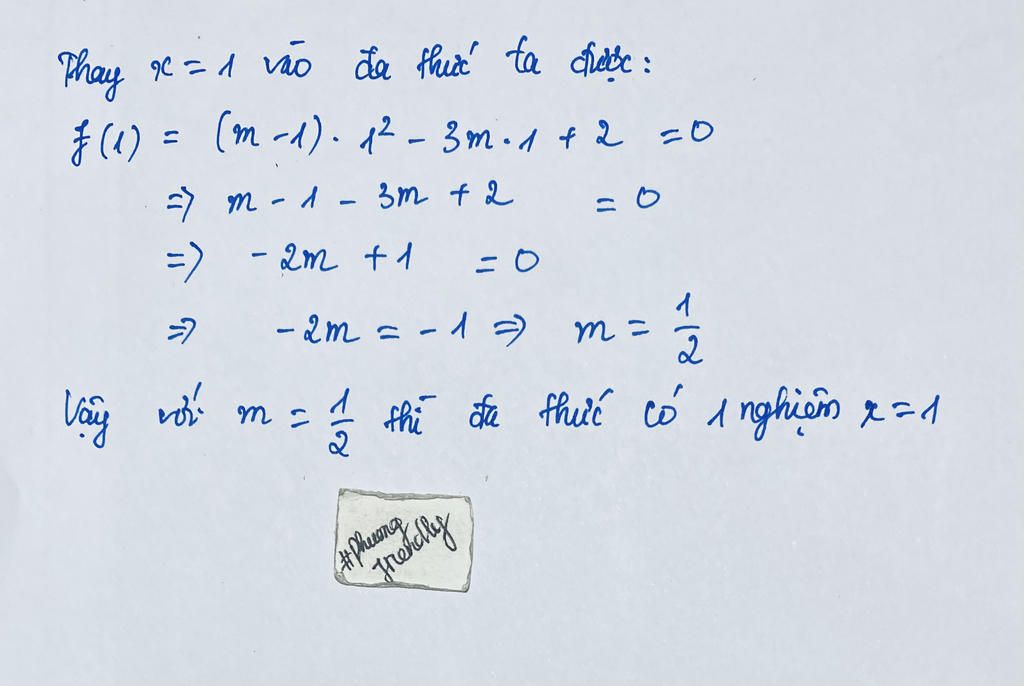 Thay x = 1 vào đa thức ta được:
f(1) = (m - 1) . 1² - 3m . 1 + 2 = 0
=> m - 1 - 3m + 2 = 0
=> - 2m + 1 = 0
=> - 2m = - 1 => m = 1/2
Vậy với m = 1/2 thì đa thức có 1 nghiệm x = 1
#Phuong